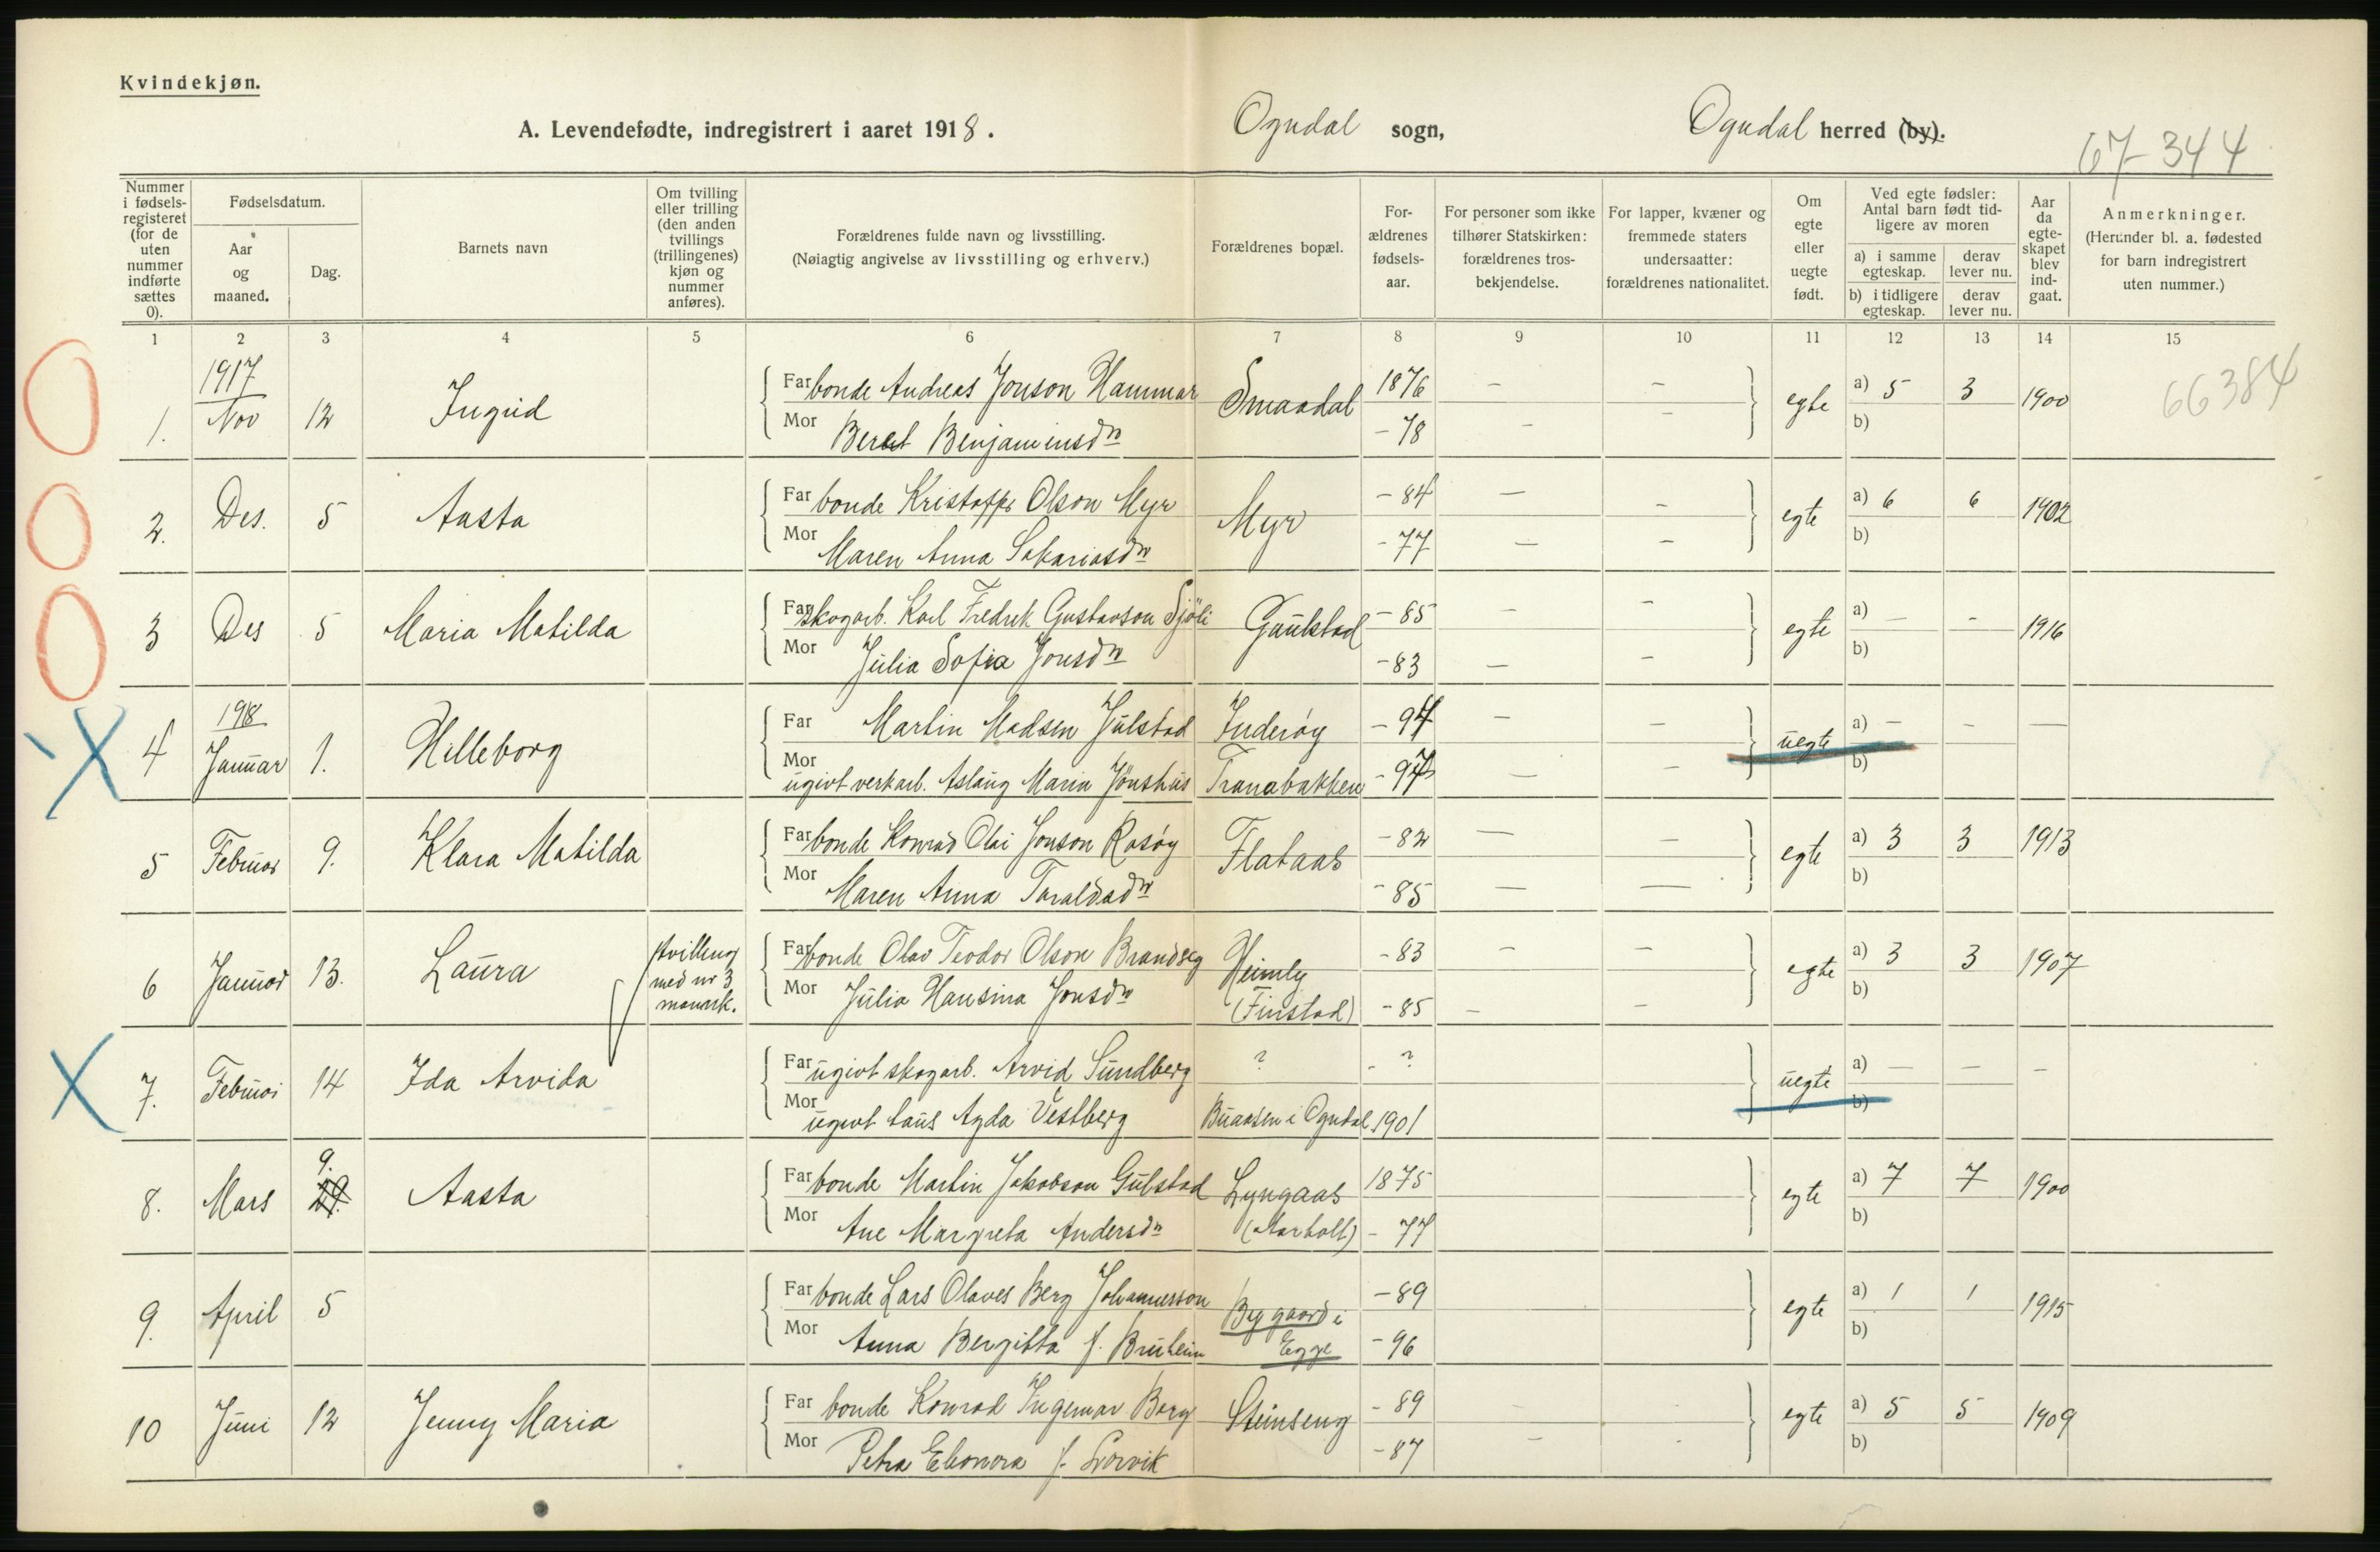 Kvindekjøn.
A. Levendefødte, indregistrert i aaret 1918. Ogndal sogn, Ogndal herred (by).
67-344
Nummer i fødsels-registeret (for de uten nummer indførte sættes 0).
Fødselsdatum.
Aar og maaned.
Dag.
Barnets navn
Om tvilling eller trilling (den anden tvillings (trillingenes) kjøn og nummer anføres).
Forældrenes fulde navn og livsstilling.
(Nøiagtig angivelse av livsstilling og erhverv.)
Forældrenes bopæl.
For-ældrenes fødsels-aar.
For personer som ikke tilhører Statskirken: forældrenes tros-bekjendelse.
For lapper, kvæner og fremmede staters undersaatter: forældrenes nationalitet.
Om egte eller uegte født.
Ved egte fødsler: Antal barn født tid-ligere av moren
a) i samme egteskap.
derav lever nu.
b) i tidligere egteskap.
derav lever nu.
Aar da egte-skapet blev ind-gaat.
Anmerkninger.
(Herunder bl. a. fødested for barn indregistrert uten nummer.)
1 2 3 4 5 6 7 8 9 10 11 12 13 14 15
1917
66384
Far bonde Andreas Jonson Hammar 1876 – –
1. Nov 12 Ingrid Smaadal egte a) 5 3 1900
Mor Beret Benjaminsdtr – 78 – – b)
Far bonde Kristoffer Olson Myr – 84 – –
2. Des. 5 Aasta Myr egte a) 6 6 1902
Mor Maren Anna Sakariasdtr – 77 – – b)
Far skogarb. Karl Fredrik Gustavson Sjöli – 85 – –
3 Des 5 Maria Matilda Gaulstad egte a) – – 1916
Mor Julia Sofia Jonsdtr – 83 – – b)
1918
Far Martin Madsen Gulstad Inderøy – 94 – –
4 Januar 1. Hilleborg uegte a) – – –
Mor ugivt verkarb. Aslaug Maria Jönshus Tranabakken – 97 – – b)
Far bonde Konrad Olai Jonson Rosøy – 82 – –
5 Februar 9. Klara Matilda Flataas egte a) 3 3 1913
Mor Maren Anna Taraldsdtr – 85 – – b)
Far bonde Olav Teodor Olson Brandseg Heimly – 83 – –
6 Januar 13. Laura tvilling med nr 3 mannk. egte a) 3 3 1907
Mor Julia Hansina Jonsdtr (Finstad) – 85 – – b)
Far ugivt skogarb. Arvid Sundberg ? – ?
7. Februar 14 Ida Arvida uegte a) – – –
Mor ugivt taus Agda Vestberg Buaasen i Ogndal 1901 b)
9.
Far bonde Martin Jakobson Gulstad Lyngaas 1875
8. Mars 29. Aasta egte a) 7 7 1900
Mor Ane Margreta Andersdtr (Aarholt) – 77 b)
Far bonde Lars Olaves Berg Johannesson – 89
9. April 5 By gaard i Egge egte a) 1 1 1915
Mor Anna Bergitta f. Bruheim – 96 b)
Far bonde Konrad Ingemar Berg – 89
10 Juni 12 Jenny Maria Steinseng egte a) 5 5 1909
Mor Petra Eleonora f. Lorvik – 87 – – b)